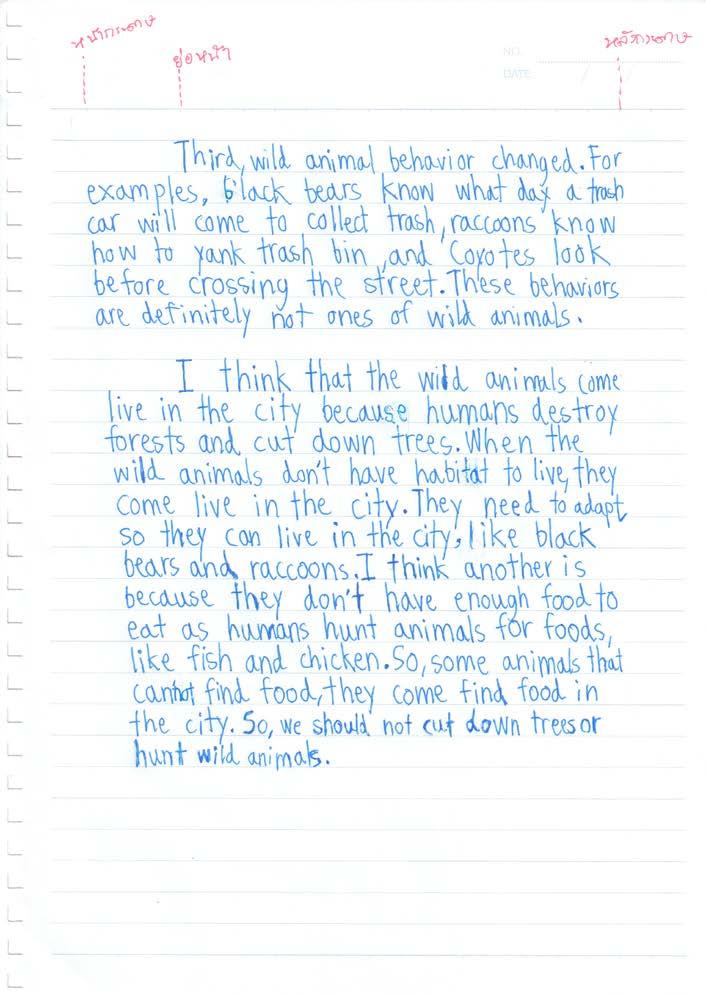 หน้ากระดาษ
ย่อหน้า
หลังกระดาษ
NO.
DATE
Third, wild animal behavior changed. For
examples, black bears know what day a trash
car will come to collect trash, raccoons know
how to yank trash bin, and Coyotes look
before crossing the street. These behaviors
are definitely not ones of wild animals.
I think that the wild animals come
live in the city because humans destroy
forests and cut down trees. When the
wild animals don't have habitat to live, they
come live in the city. They need to adapt
so they can live in the city, like black
bears and raccoons. I think another is
because they don't have enough food to
eat as humans hunt animals for foods,
like fish and chicken. So, some animals that
cannot find food, they come find food in
the city. So, we should not cut down trees or
hunt wild animals.